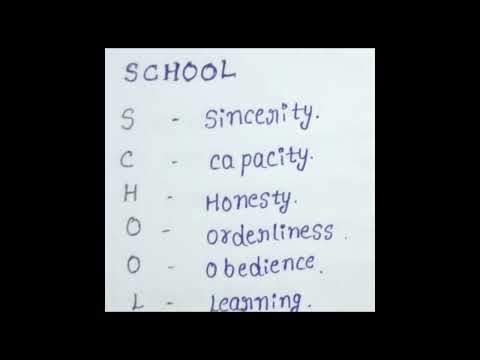 SCHOOL
S - Sincerity.
C - capacity.
H - Honesty.
O - orderliness.
O - obedience.
L - Learning.